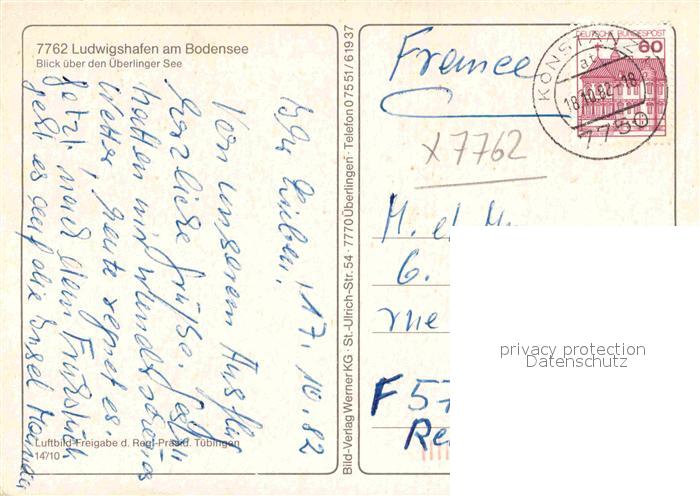 7762 Ludwigshafen am Bodensee
Blick über den Überlinger See
17.10.82
Ihr Lieben,
Von unserem Ausflug
herzliche Grüße. Gestern
hatten wir wunderschönes
Wetter, heute regnet es.
Jetzt nach dem Frühstück
geht es auf die Insel Mainau
Luftbild-Freigabe d. Reg.-Präsid. Tübingen
14/10
Bild-Verlag Werner KG · St.-Ulrich-Str. 54 · 7770 Überlingen · Telefon 0 75 51/6 19 37
France
DEUTSCHE BUNDESPOST
60
KONSTANZ
18.10.82-18
7750
x 7762
M. et M
6.
rue
F 57
Re
privacy protection
Datenschutz